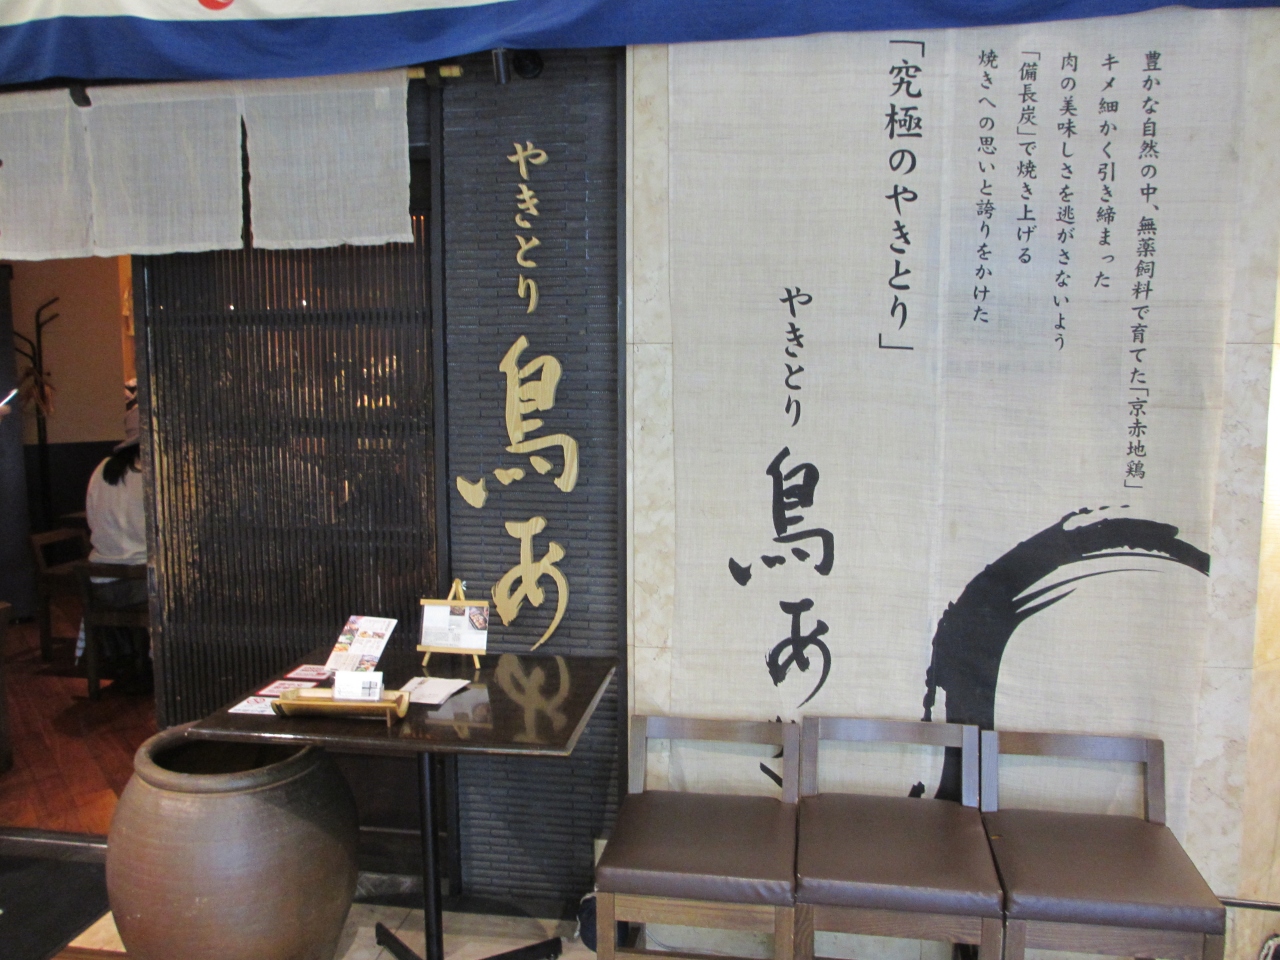 豊かな自然の中、無薬飼料で育てた「京赤地鶏」
キメ細かく引き締まった
肉の美味しさを逃がさないよう
「備長炭」で焼き上げる
焼きへの思いと誇りをかけた
「究極のやきとり」
やきとり
鳥あ
やきとり
鳥あ